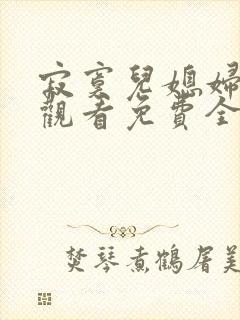 寂寞兒媳婦
觀看免費全
焚琴煮鶴屠美